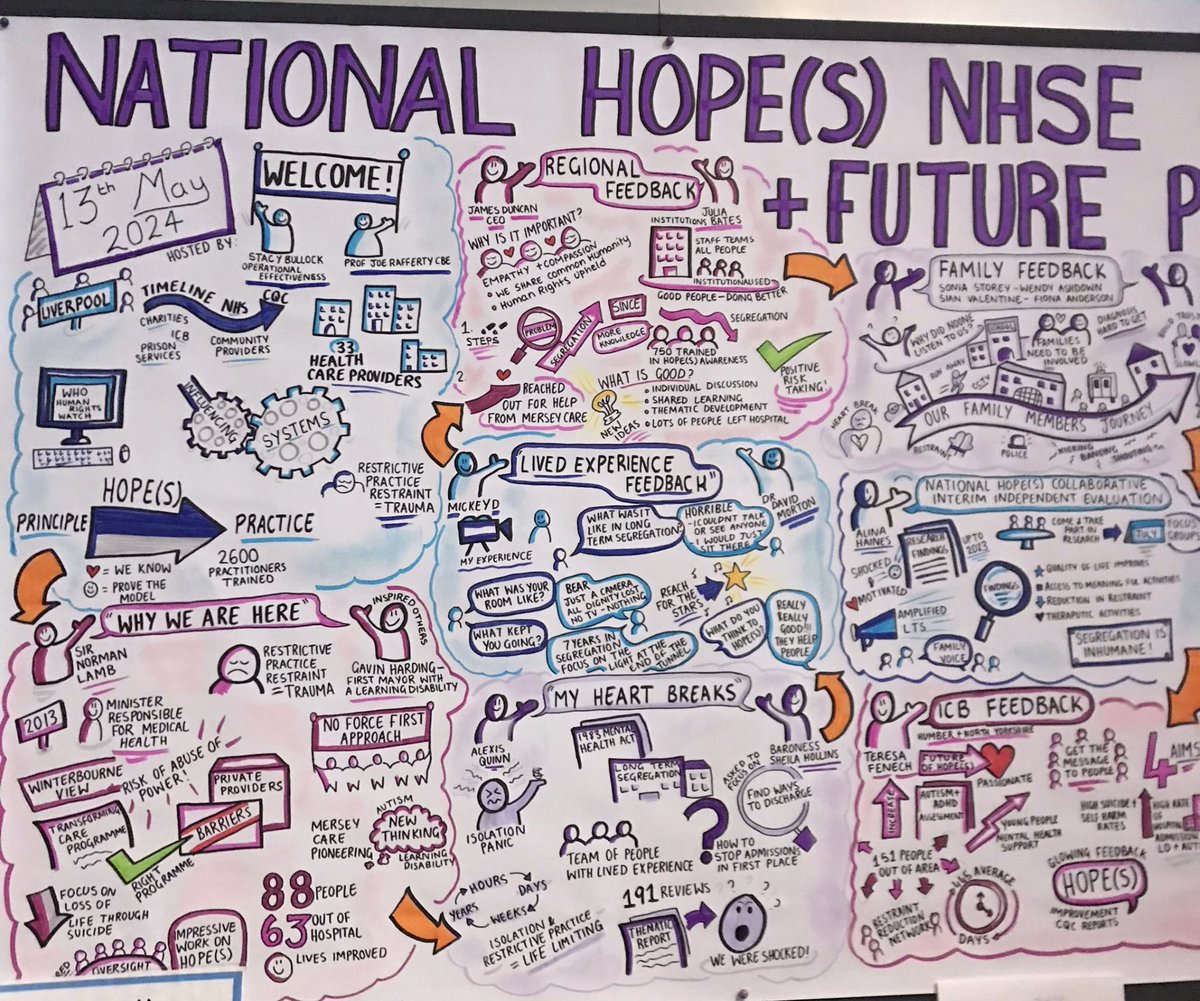 NATIONAL HOPE(S) NHSE
+ FUTURE P
13th May
2024
HOSTED BY:
WELCOME!
STACY BULLOCK
OPERATIONAL
EFFECTIVENESS
PROF JOE RAFFERTY CBE
LIVERPOOL
TIMELINE NHS
CQC
CHARITIES
ICB
PRISON
SERVICES
COMMUNITY
PROVIDERS
33
HEALTH
CARE PROVIDERS
WHO
HUMAN
RIGHTS
WATCH
INFLUENCING
SYSTEMS
RESTRICTIVE
PRACTICE
RESTRAINT
=TRAUMA
HOPE(S)
PRINCIPLE
PRACTICE
= WE KNOW
= PROVE THE
MODEL
2600
PRACTITIONERS
TRAINED
"WHY WE ARE HERE"
SIR
NORMAN
LAMB
INSPIRED
OTHERS
RESTRICTIVE
PRACTICE
RESTRAINT
=TRAUMA
GAVIN HARDING-
FIRST MAYOR WITH
A LEARNING DISABILITY
2013
MINISTER
RESPONSIBLE
FOR MEDICAL
HEALTH
NO FORCE FIRST
APPROACH
WINTERBOURNE
VIEW
RISK OF ABUSE OF
POWER!
PRIVATE
PROVIDERS
BARRIERS
TRANSFORMING
CARE
PROGRAMME
RIGHT
PROGRAMME
MERSEY
CARE
PIONEERING
AUTISM
NEW
THINKING
LEARNING
DISABILITY
FOCUS ON
LOSS OF
LIFE THROUGH
SUICIDE
OVERSIGHT
IMPRESSIVE
WORK ON
HOPE(S)
88 PEOPLE
63 OUT OF
HOSPITAL
LIVES IMPROVED
REGIONAL
FEEDBACK
JAMES DUNCAN
CEO
JULIA
BATES
WHY IS IT IMPORTANT?
EMPATHY + COMPASSION
• WE SHARE COMMON HUMANITY
• HUMAN RIGHTS UPHELD
INSTITUTIONS
STAFF TEAMS
ALL PEOPLE
INSTITUTIONAUSED
GOOD PEOPLE-DOING BETTER
1.
STEPS
PROBLEM
SEGREGATION
SINCE
MORE
KNOWLEDGE
SEGREGATION
750 TRAINED
IN HOPE(S) AWARENESS
POSITIVE
RISK
TAKING!
2.
REACHED
OUT FOR HELP
FROM MERSEY CARE
NEW
IDEAS
WHAT IS GOOD?
• INDIVIDUAL DISCUSSION
• SHARED LEARNING
• THEMATIC DEVELOPMENT
• LOTS OF PEOPLE LEFT HOSPITAL
"LIVED EXPERIENCE
FEEDBACK"
MICKEY D
DR
DAVID
MORTON
MY EXPERIENCE
WHAT WAS IT
LIKE IN LONG
TERM SEGREGATION
HORRIBLE
-I COULDN'T TALK
OR SEE ANYONE
I WOULD JUST
SIT THERE
WHAT WAS YOUR
ROOM LIKE?
BEAR
JUST A CAMERA
ALL DIGNITY LOST
NO TV - NOTHING
REACH
FOR THE
STARS
WHAT KEPT
YOU GOING?
7 YEARS IN
SEGREGATION
FOCUS ON THE
LIGHT AT THE
END OF THE
TUNNEL
WHAT DO YOU
THINK TO
HOPE(S)?
REALLY
REALLY
GOOD!!!
THEY HELP
PEOPLE
"MY HEART BREAKS"
ALEXIS
QUINN
BARONESS
SHEILA HOLLINS
1983 MENTAL
HEALTH ACT
LONG TERM
SEGREGATION
ASKED TO
FOCUS ON
FIND WAYS
TO DISCHARGE
ISOLATION
PANIC
TEAM OF PEOPLE
WITH LIVED EXPERIENCE
HOW TO
STOP ADMISSIONS
IN FIRST PLACE
HOURS
DAYS
WEEKS
YEARS
ISOLATION &
RESTRICTIVE PRACTICE
= LIFE LIMITING
191 REVIEWS
THEMATIC
REPORT
WE WERE SHOCKED!
FAMILY FEEDBACK
SONIA STOREY-WENDY ASHDOWN
SIAN VALENTINE-FIONA ANDERSON
WHY DID NOONE
LISTEN TO US?
SCHOOL
FAMILIES
NEED TO BE
INVOLVED
DIAGNOSIS
HARD TO GET
RUN AWAY
CCTV
HEART BREAK
OUR FAMILY MEMBERS JOURNEY
RESTRAINT
POLICE
KICKING
BANGING
SHOUTING
NATIONAL HOPE(S) COLLABORATIVE
INTERIM INDEPENDENT EVALUATION
ALINA
HAINES
RESEARCH
FINDINGS
UP TO
2023
COME & TAKE
PART IN
RESEARCH
JULY
FOCUS
GROUPS
SHOCKED
MOTIVATED
AMPLIFIED
LTS
FINDINGS
QUALITY OF LIFE IMPROVES
ACCESS TO MEANINGFUL ACTIVITIES
REDUCTION IN RESTRAINT
THERAPUTIC ACTIVITIES
FAMILY
VOICE
SEGREGATION IS
INHUMANE!
ICB FEEDBACK
HUMBER + NORTH YORKSHIRE
TERESA
FENECH
FUTURE
OF HOPE(S)
PASSIONATE
GET THE
MESSAGE
TO PEOPLE
4 AIMS
INCREASE
AUTISM+
ADHD
ASSESSMENT
YOUNG PEOPLE
MENTAL HEALTH
SUPPORT
HIGH SUICIDE+
SELF HARM
RATES
HIGH RATE
OF
LD + AUT
151 PEOPLE
OUT OF AREA
RESTRAINT
REDUCTION
NETWORK
AVERAGE
DAYS
GLOWING FEEDBACK
HOPE(S)
IMPROVEMENT
CQC REPORTS